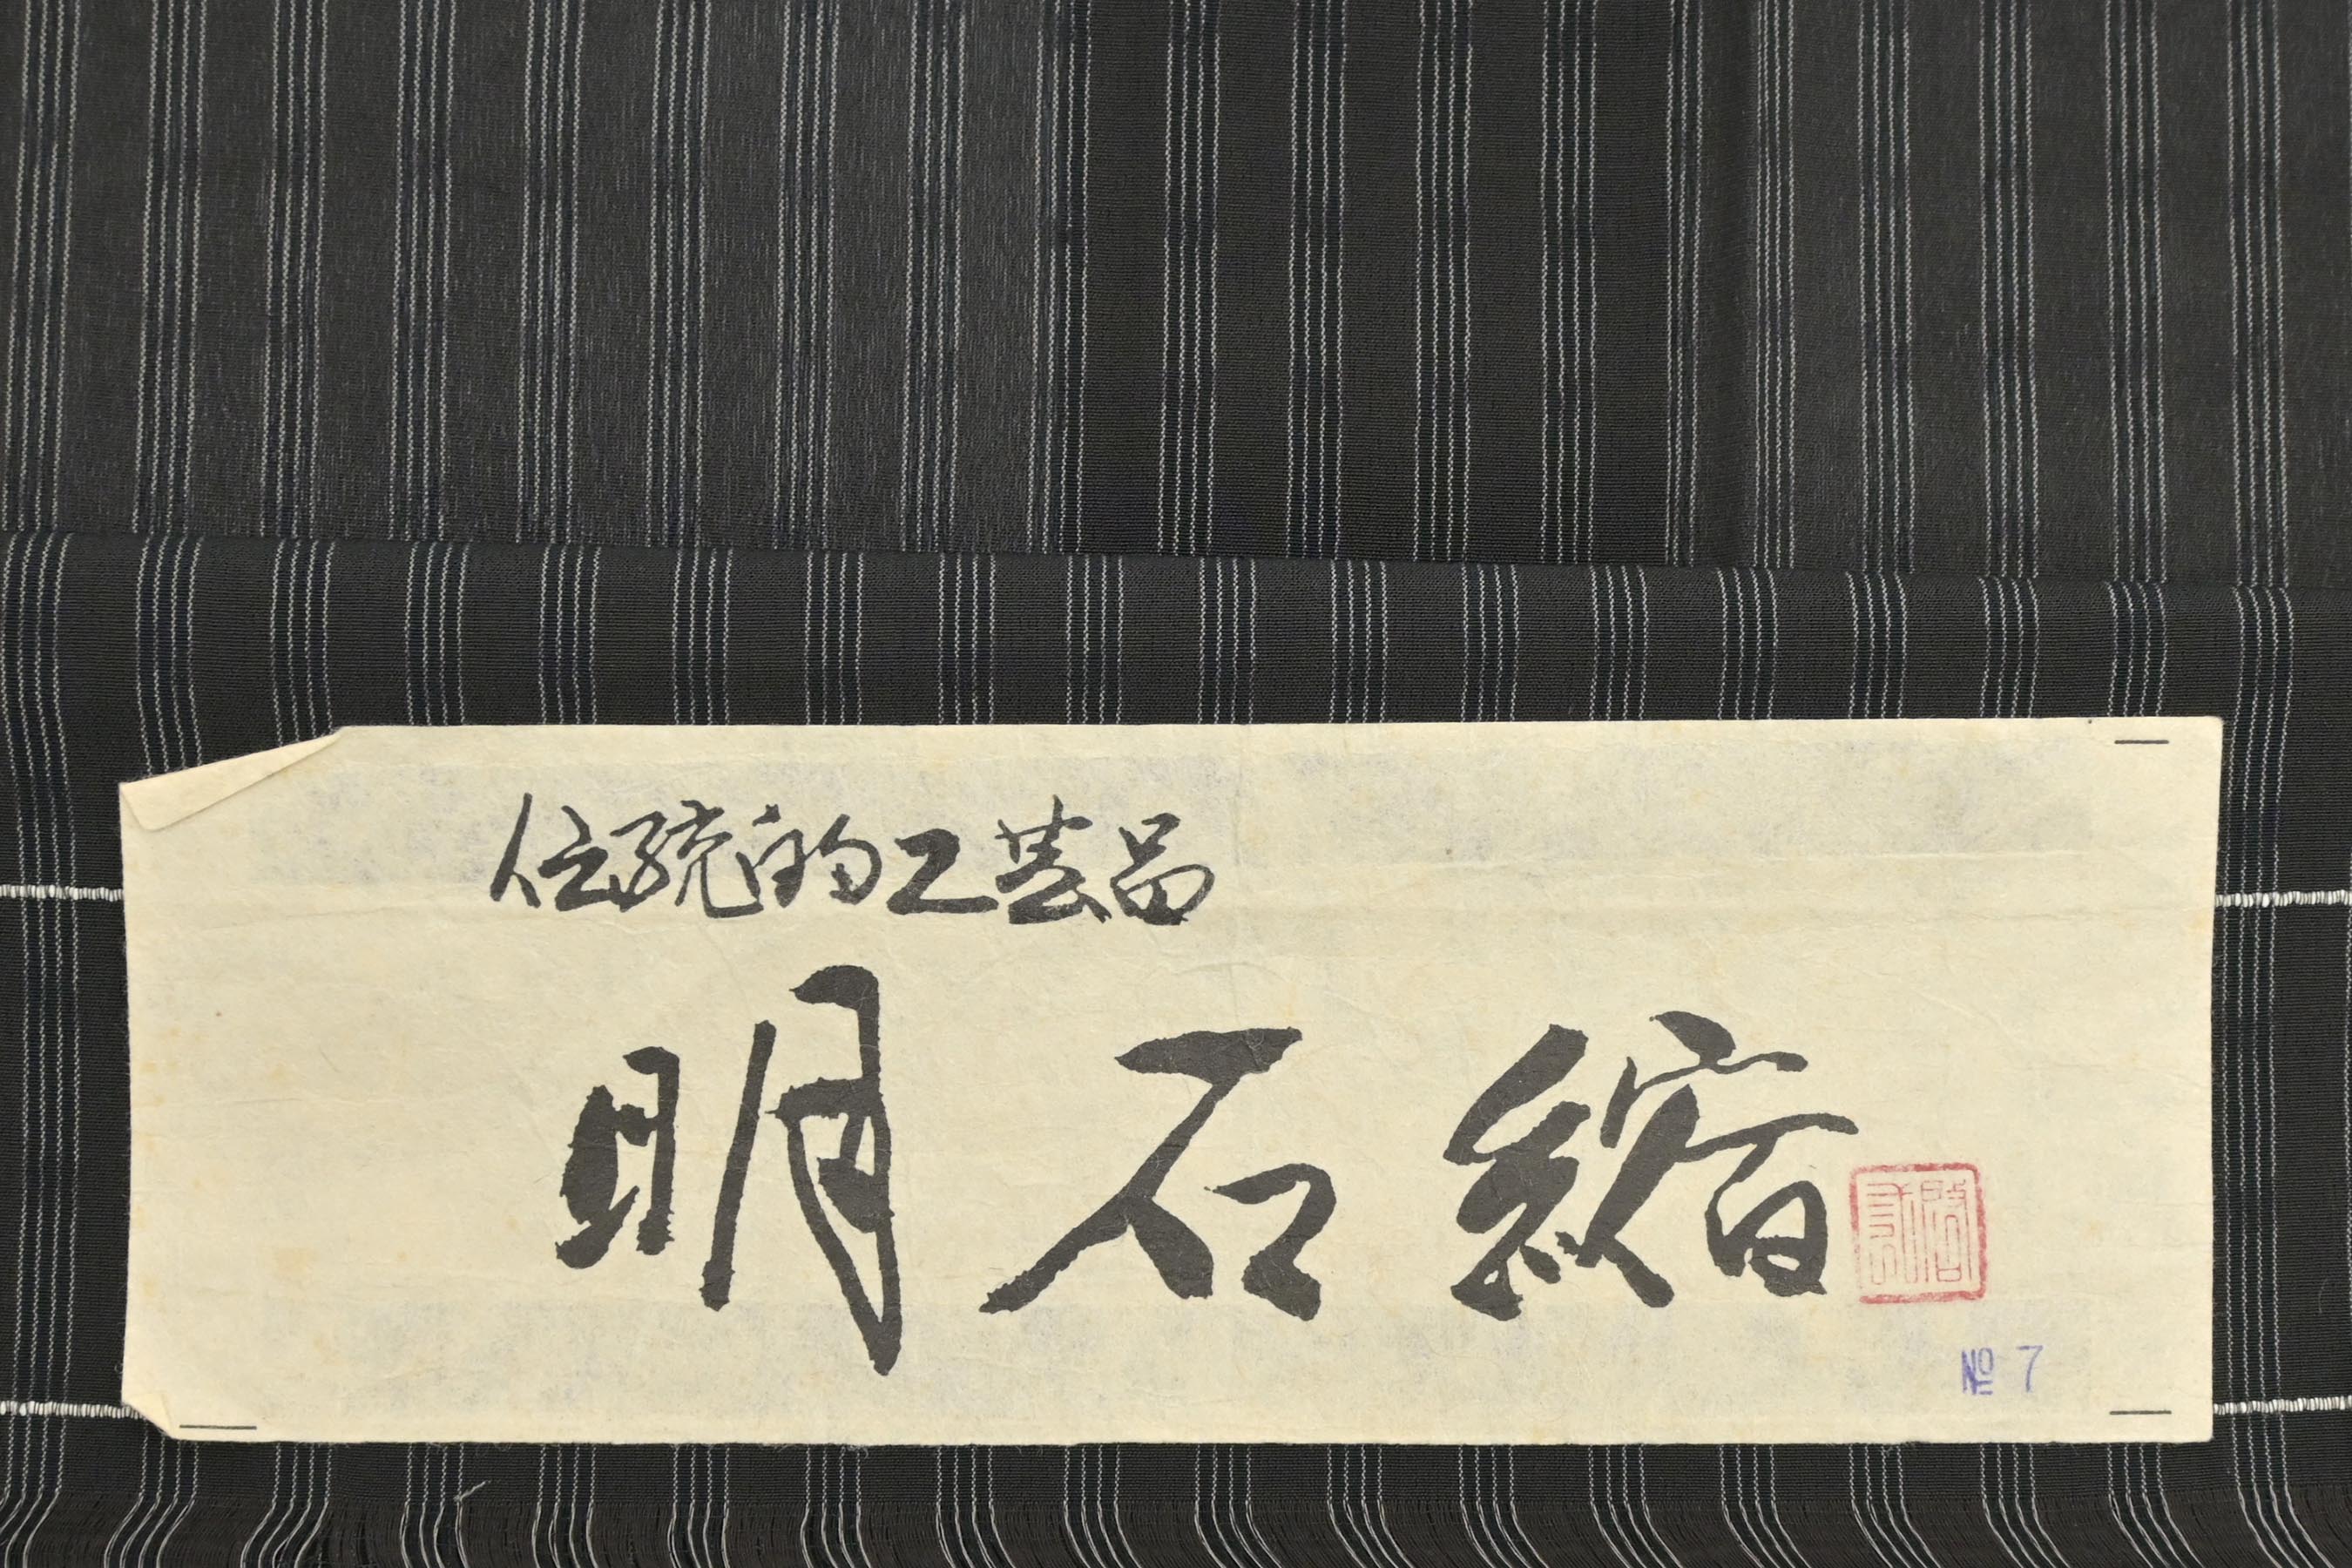 伝統的工芸品
明石縮
№ 7